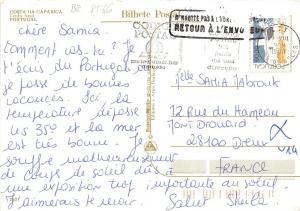 COSTA DA CAPARICA
PORTUGAL
Bilhete Postal
RETOUR À L'ENVOYEUR
chère Samia,
Comment vas-tu? Je
t'écris du Portugal
je passe de bonnes
vacances. Ici la
température dépasse
les 35° et la mer
est très bonne. Je
souffre malheureusement
de coups de soleil dus à
une exposition trop importante au soleil.
J'aimerais te revoir. Salut Sheila
Melle SAMIA Jabrouk
12 Rue du Hameau
Pont Drouard
28100 Dreux
FRANCE